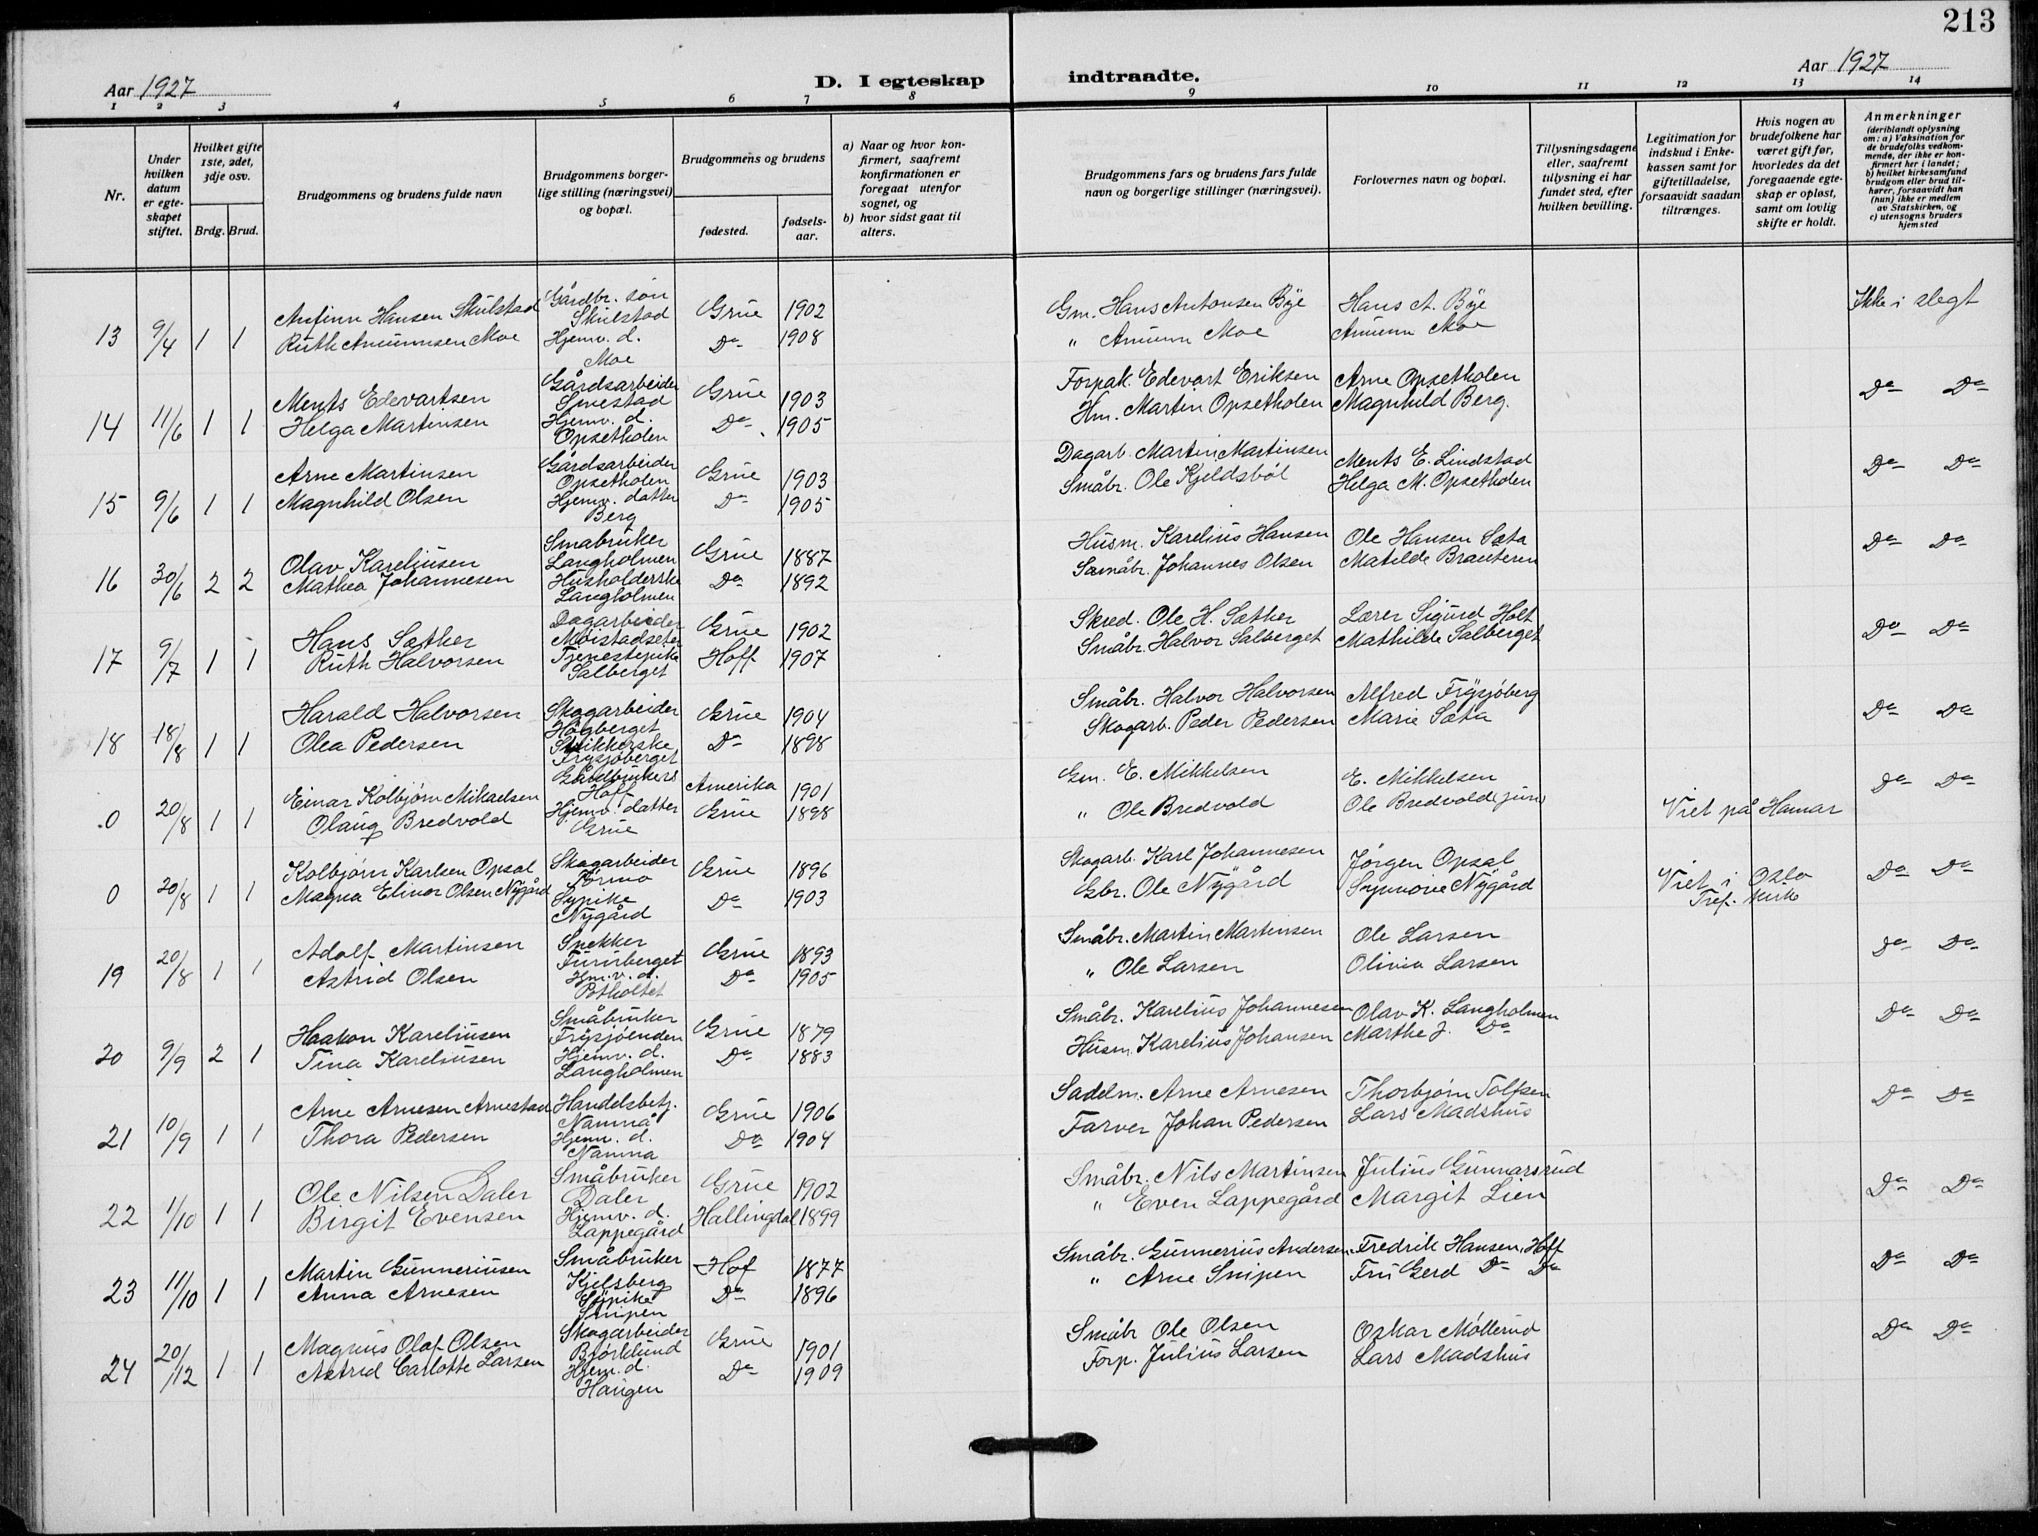 213
Aar 1927
D. I egteskap indtraadte.
Aar 1927
1 2 3 4 5 6 7 8 9 10 11 12 13 14
Nr.
Under hvilken datum er egteskapet stiftet.
Hvilket gifte 1ste, 2det, 3dje osv.
Brdg. Brud.
Brudgommens og brudens fulde navn
Brudgommens borgerlige stilling (næringsvei) og bopæl.
Brudgommens og brudens
fødested.
fødselsaar.
a) Naar og hvor konfirmert, saafremt konfirmationen er foregaat utenfor sognet, og
b) hvor sidst gaat til alters.
Brudgommens fars og brudens fars fulde navn og borgerlige stillinger (næringsvei).
Forlovernes navn og bopæl.
Tillysningsdagene eller, saafremt tillysning ei har fundet sted, efter hvilken bevilling.
Legitimation for indskud i Enkekassen samt for giftetilladelse, forsaavidt saadan tiltrænges.
Hvis nogen av brudefolkene har været gift før, hvorledes da det foregaaende egteskap er opløst, samt om lovlig skifte er holdt.
Anmerkninger
(deriblandt oplysning om: a) Vaksination for de brudefolks vedkommende, der ikke er konfirmert her i landet; b) hvilket kirkesamfund brudgom eller brud tilhører, forsaavidt han (hun) ikke er medlem av Statskirken, og c) utensogns bruders hjemsted
13 9/4 1 1
Anfinn Hansen Skulstad Gårdbr. søn Skulstad Grue 1902 Gm. Hans Antonsen Bye Hans A. Bye Ikke i slegt
Ruth Amunnsen Moe Hjemv. d. Moe Do 1908 " Amunn Moe Amunn Moe
14 11/6 1 1
Ments Edevartsen Gårdsarbeider Grue 1903 Forpak. Edevart Eriksen Arne Opsetholen Do Do
Helga Martinsen Hjemv. d. Opsetholen Do 1905 Hm. Martin Opsetholen Magnhild Berg.
15 9/6 1 1
Arne Martinsen Gårdsarbeider Opsetholen Grue 1903 Dagarb. Martin Martinsen Ments E. Lindstad Do Do
Magnhild Olsen Hjemv. datter Berg Do 1905 Småbr. Ole Kjeldsböl Helga M. Opsetholen
16 30/6 2 2
Olav Kareliusen Småbruker Langholmen Grue 1887 Husm. Karelius Hansen Ole Hansen Sæta Do Do
Mathea Johannesen Husholderske Langholmen Do 1892 Småbr. Johannes Olsen Matilde Brauteren
17 9/7 1 1
Hans Sæther Dagarbeider Moistadseter Grue 1902 Skred. Ole H. Sæther Lærer Sigurd Holt Do Do
Ruth Halvorsen Tjenestepike Salberget Hoff 1907 Småbr. Halvor Salberget Mathilde Salberget
18 18/8 1 1
Harald Halvorsen Skogarbeider Högberget Grue 1904 Småbr. Halvor Halvorsen Alfred Frysjöberg Do Do
Olea Pedersen Frysjöberget Do 1898 Skogarb. Peder Pedersen Marie Sæta
0 20/8 1 1
Einar Kolbjørn Mikaelsen Gårdbrukers Hoff Amerika 1901 Gm. E. Mikkelsen E. Mikkelsen Do Do
Olaug Bredvold Hjemv. datter Grue Grue 1898 " Ole Bredvold Ole Bredvold jun Viet på Hamar
0 20/8 1 1
Kolbjørn Karlsen Opsal Skogarbeider Grue 1896 Skogarb. Karl Johannesen Jørgen Opsal Do Do
Magna Elinor Olsen Nygård Sypike Nygård Do 1903 Gbr. Ole Nygård Synnøve Nygård Viet i Oslo Tref. kirke
19 20/8 1 1
Adolf Martinsen Snekker Furuberget Grue 1893 Småbr. Martin Martinsen Ole Larsen Do Do
Astrid Olsen Hm. v. d. Potholtet Do 1905 " Ole Larsen Olivia Larsen
20 9/9 2 1
Haakon Kareliusen Småbruker Frysjöenden Grue 1879 Småbr. Karelius Johannesen Olav K. Langholmen Do Do
Tina Kareliusen Hjemv. d. Langholmen Do 1883 Husm. Karelius Johansen Marthe J. Do
21 10/9 1 1
Arne Arnesen Arnestad Handelsbetj. Namnå Grue 1906 Sadelm. Arne Arnesen Thorbjørn Tolfsen Do Do
Thora Pedersen Hjemv. d. Namnå Do 1904 Farver Johan Pedersen Lars Madshus
22 1/10 1 1
Ole Nilsen Daler Småbruker Daler Grue 1902 Småbr. Nils Martinsen Julius Gunnarsrud Do Do
Birgit Evensen Hjemv. d. Lappegård Hallingdal 1899 " Even Lappegård Margit Lien
23 11/10 1 1
Martin Gunneriusen Småbruker Kjelsberg Hof 1877 Småbr. Gunnerius Andersen Fredrik Hansen, Hoff Do Do
Anna Arnesen Sypike Snipen Do 1896 " Arne Snipen Fru Gerd Do Do
24 20/12 1 1
Magnus Olaf Olsen Skogarbeider Björklund Grue 1901 Småbr Ole Olsen Oskar Möllerud Do Do
Astrid Carlotte Larsen Hjem. d. Haugen Do 1909 Forp. Julius Larsen Lars Madshus